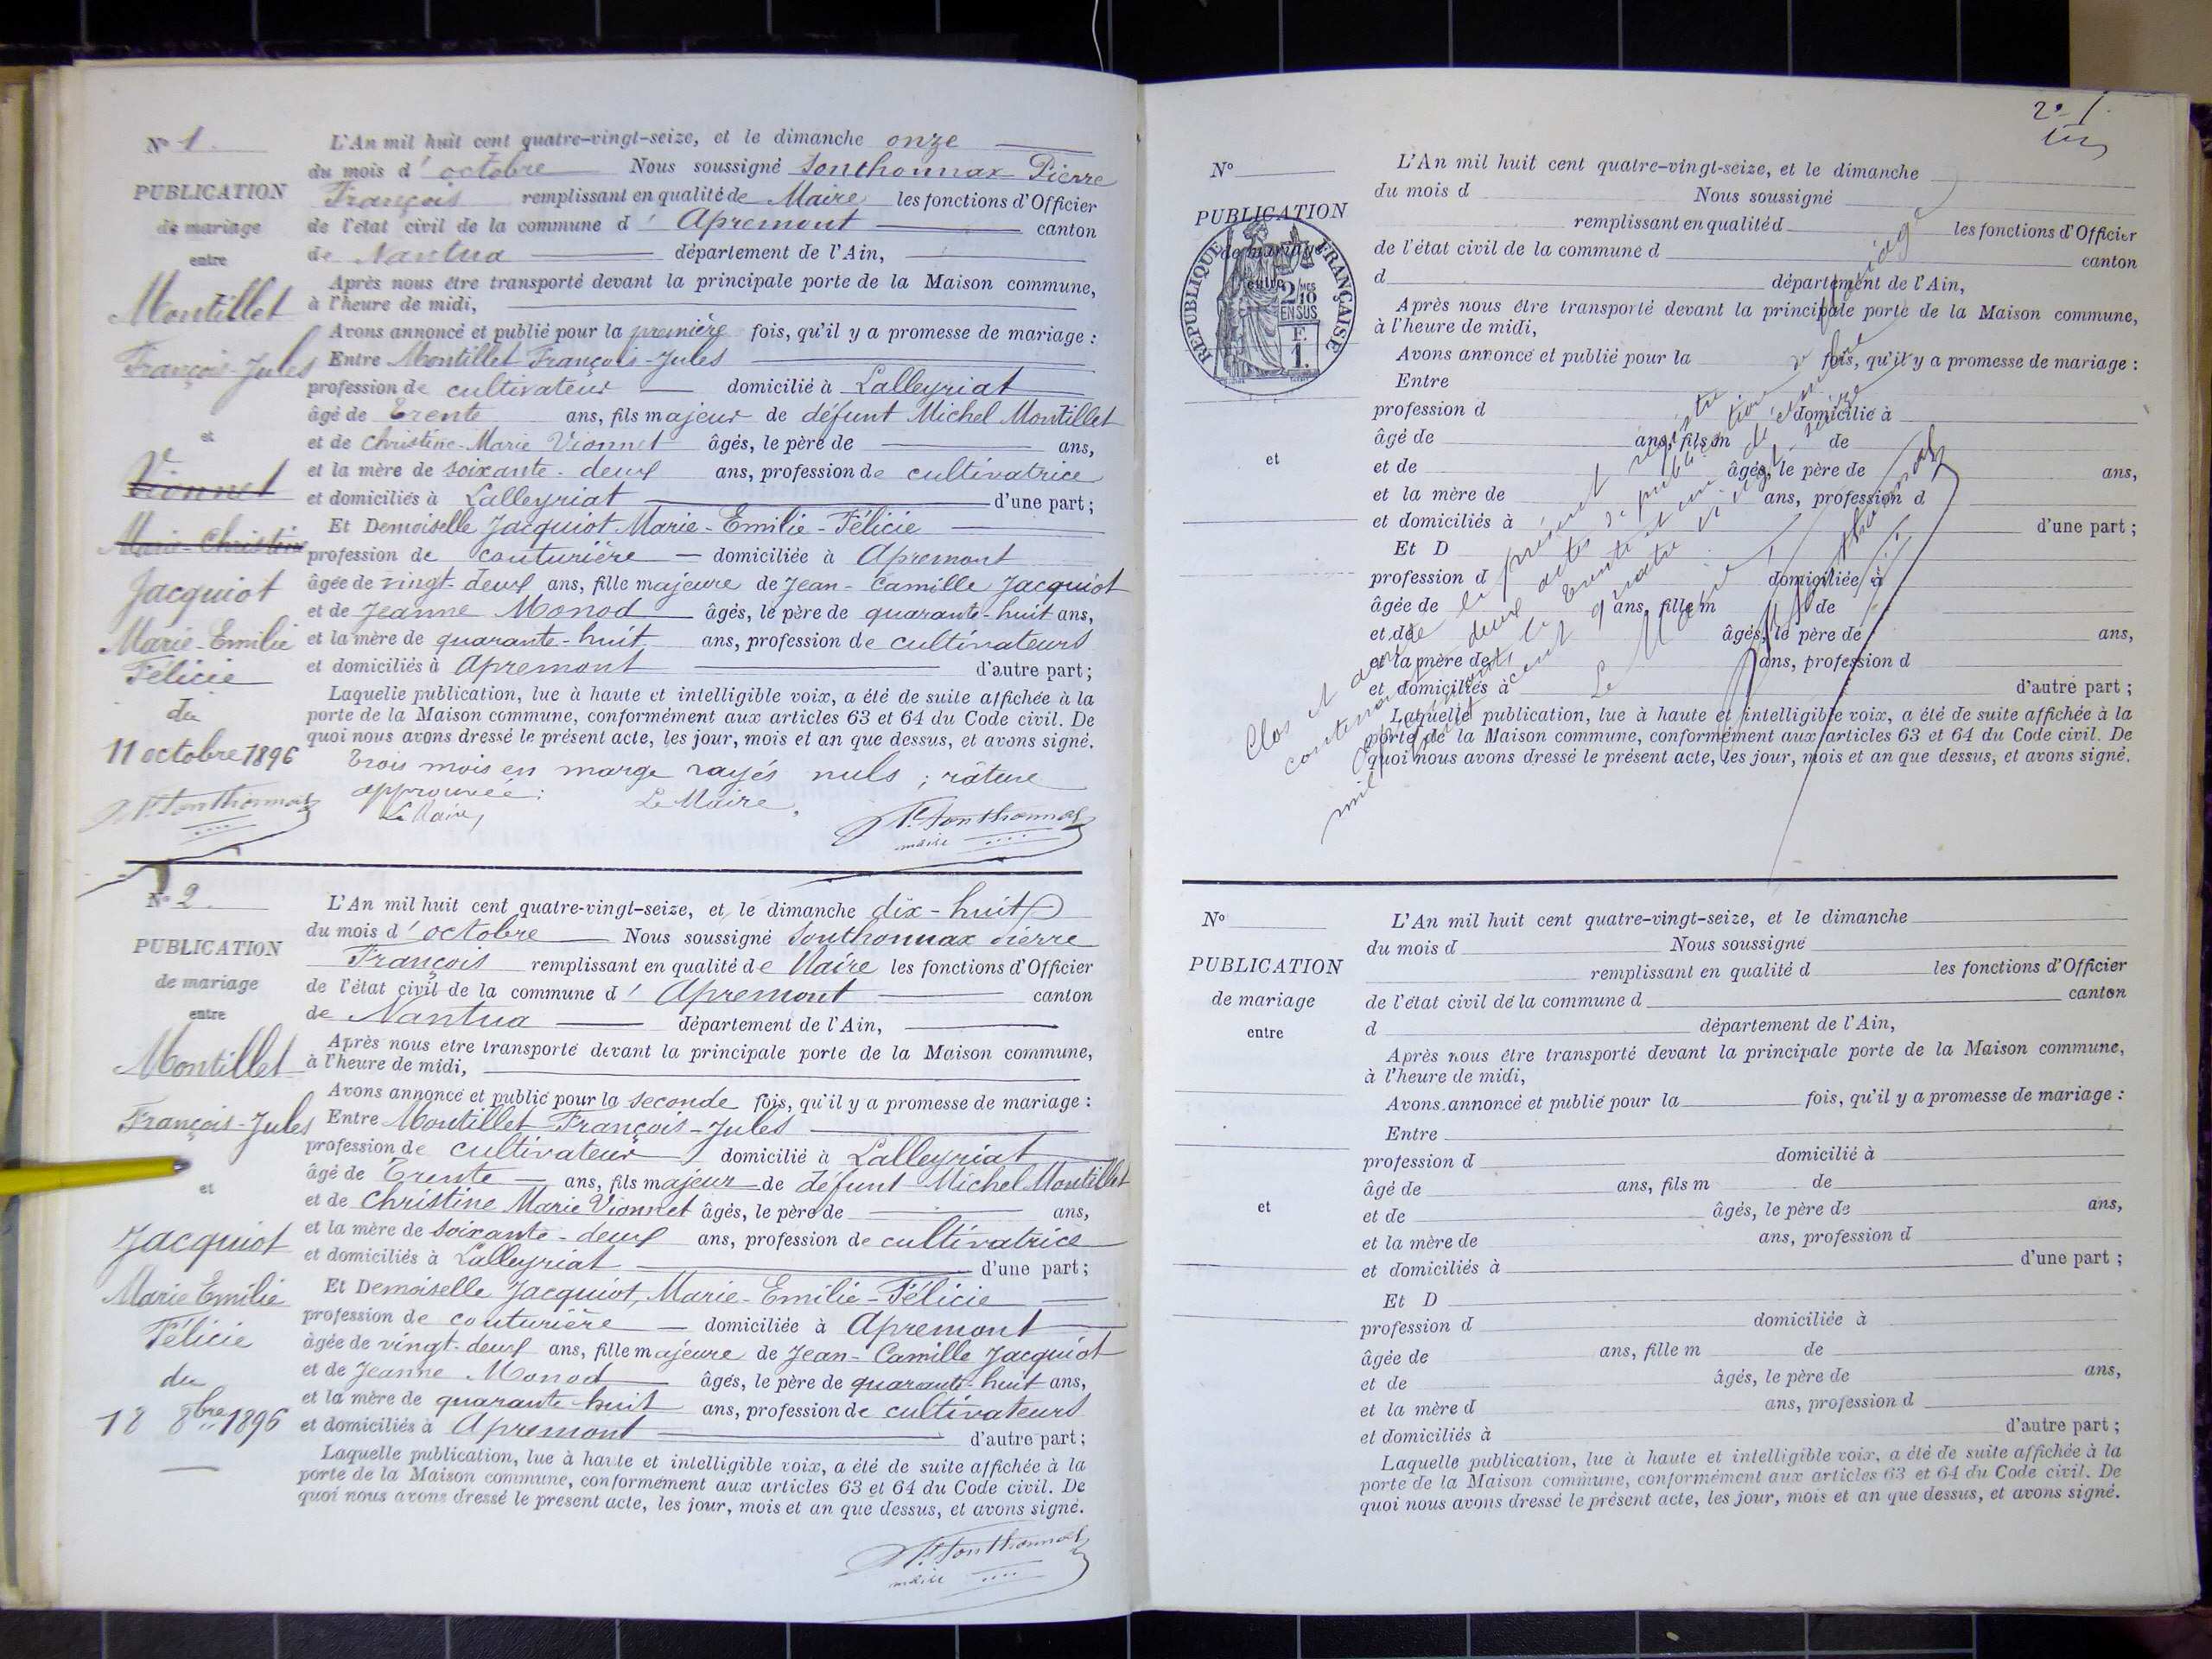 N° 1
PUBLICATION
de mariage
entre
Montillet
François-Jules
et
Vionnet
Marie-Christine
Jacquiot
Marie-Emilie
Félicie
du
11 octobre 1896
P. Sonthonnax
L'An mil huit cent quatre-vingt-seize, et le dimanche onze
du mois d'octobre Nous soussigné Sonthonnax Pierre
François remplissant en qualité de Maire les fonctions d'Officier
de l'état civil de la commune d'Apremont canton
de Nantua département de l'Ain,
Après nous être transporté devant la principale porte de la Maison commune,
à l'heure de midi,
Avons annoncé et publié pour la première fois, qu'il y a promesse de mariage :
Entre Montillet François-Jules
profession de cultivateur domicilié à Lalleyriat
âgé de trente ans, fils majeur de défunt Michel Montillet
et de Christine-Marie Vionnet âgés, le père de ans,
et la mère de soixante-deux ans, profession de cultivatrice
et domiciliés à Lalleyriat d'une part ;
Et Demoiselle Jacquiot Marie-Emilie-Félicie
profession de couturière domiciliée à Apremont
âgée de vingt-deux ans, fille majeure de Jean-Camille Jacquiot
et de Jeanne Monod âgés, le père de quarante-huit ans,
et la mère de quarante-huit ans, profession de cultivateurs
et domiciliés à Apremont d'autre part ;
Laquelle publication, lue à haute et intelligible voix, a été de suite affichée à la
porte de la Maison commune, conformément aux articles 63 et 64 du Code civil. De
quoi nous avons dressé le présent acte, les jour, mois et an que dessus, et avons signé.
Trois mois en marge rayés nuls ; râture
approuvée :
Le Maire, Le Maire,
P. Sonthonnax
maire
N° 2
PUBLICATION
de mariage
entre
Montillet
François-Jules
et
Jacquiot
Marie Emilie
Félicie
du
18 8bre 1896
L'An mil huit cent quatre-vingt-seize, et le dimanche dix-huit
du mois d'octobre Nous soussigné Sonthonnax Pierre
François remplissant en qualité de Maire les fonctions d'Officier
de l'état civil de la commune d'Apremont canton
de Nantua département de l'Ain,
Après nous être transporté devant la principale porte de la Maison commune,
à l'heure de midi,
Avons annoncé et publié pour la seconde fois, qu'il y a promesse de mariage :
Entre Montillet François-Jules
profession de cultivateur domicilié à Lalleyriat
âgé de trente ans, fils majeur de défunt Michel Montillet
et de Christine Marie Vionnet âgés, le père de ans,
et la mère de soixante-deux ans, profession de cultivatrice
et domiciliés à Lalleyriat d'une part ;
Et Demoiselle Jacquiot, Marie-Emilie-Félicie
profession de couturière domiciliée à Apremont
âgée de vingt-deux ans, fille majeure de Jean-Camille Jacquiot
et de Jeanne Monod âgés, le père de quarante-huit ans,
et la mère de quarante-huit ans, profession de cultivateurs
et domiciliés à Apremont d'autre part ;
Laquelle publication, lue à haute et intelligible voix, a été de suite affichée à la
porte de la Maison commune, conformément aux articles 63 et 64 du Code civil. De
quoi nous avons dressé le présent acte, les jour, mois et an que dessus, et avons signé.
P. Sonthonnax
maire
N°
PUBLICATION
de mariage
entre
RÉPUBLIQUE FRANÇAISE
2/10
MES
EN SUS
F.
1.
et
L'An mil huit cent quatre-vingt-seize, et le dimanche
du mois d Nous soussigné
remplissant en qualité d les fonctions d'Officier
de l'état civil de la commune d canton
d département de l'Ain,
Après nous être transporté devant la principale porte de la Maison commune,
à l'heure de midi,
Avons annoncé et publié pour la fois, qu'il y a promesse de mariage :
Entre
profession d domicilié à
âgé de ans, fils m de
et de âgés, le père de ans,
et la mère de ans, profession d
et domiciliés à d'une part ;
Et D
profession d domiciliée à
âgée de ans, fille m de
et de âgés, le père de ans,
et la mère de ans, profession d
et domiciliés à d'autre part ;
Laquelle publication, lue à haute et intelligible voix, a été de suite affichée à la
porte de la Maison commune, conformément aux articles 63 et 64 du Code civil. De
quoi nous avons dressé le présent acte, les jour, mois et an que dessus, et avons signé.
Clos et arrêté le présent registre
contenant deux actes de publications de mariage
Apremont, le trente et un décembre
mil huit cent quatre vingt seize
Le Maire
P. Sonthonnax
N°
PUBLICATION
de mariage
entre
et
L'An mil huit cent quatre-vingt-seize, et le dimanche
du mois d Nous soussigné
remplissant en qualité d les fonctions d'Officier
de l'état civil de la commune d canton
d département de l'Ain,
Après nous être transporté devant la principale porte de la Maison commune,
à l'heure de midi,
Avons annoncé et publié pour la fois, qu'il y a promesse de mariage :
Entre
profession d domicilié à
âgé de ans, fils m de
et de âgés, le père de ans,
et la mère de ans, profession d
et domiciliés à d'une part ;
Et D
profession d domiciliée à
âgée de ans, fille m de
et de âgés, le père de ans,
et la mère d ans, profession d
et domiciliés à d'autre part ;
Laquelle publication, lue à haute et intelligible voix, a été de suite affichée à la
porte de la Maison commune, conformément aux articles 63 et 64 du Code civil. De
quoi nous avons dressé le présent acte, les jour, mois et an que dessus, et avons signé.